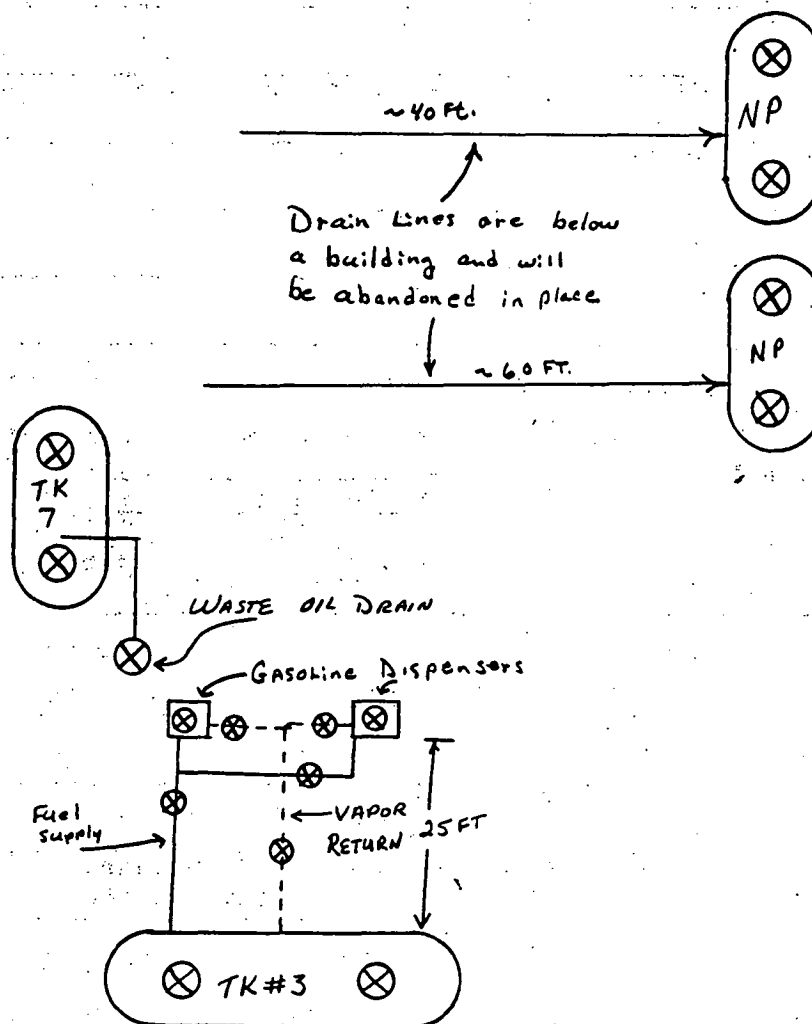 ~40 Ft.
NP
Drain Lines are below
a building and will
be abandoned in place
NP
~60 FT.
TK
7
WASTE OIL DRAIN
Gasoline Dispensers
Fuel
supply
VAPOR
RETURN
25 FT
TK #3